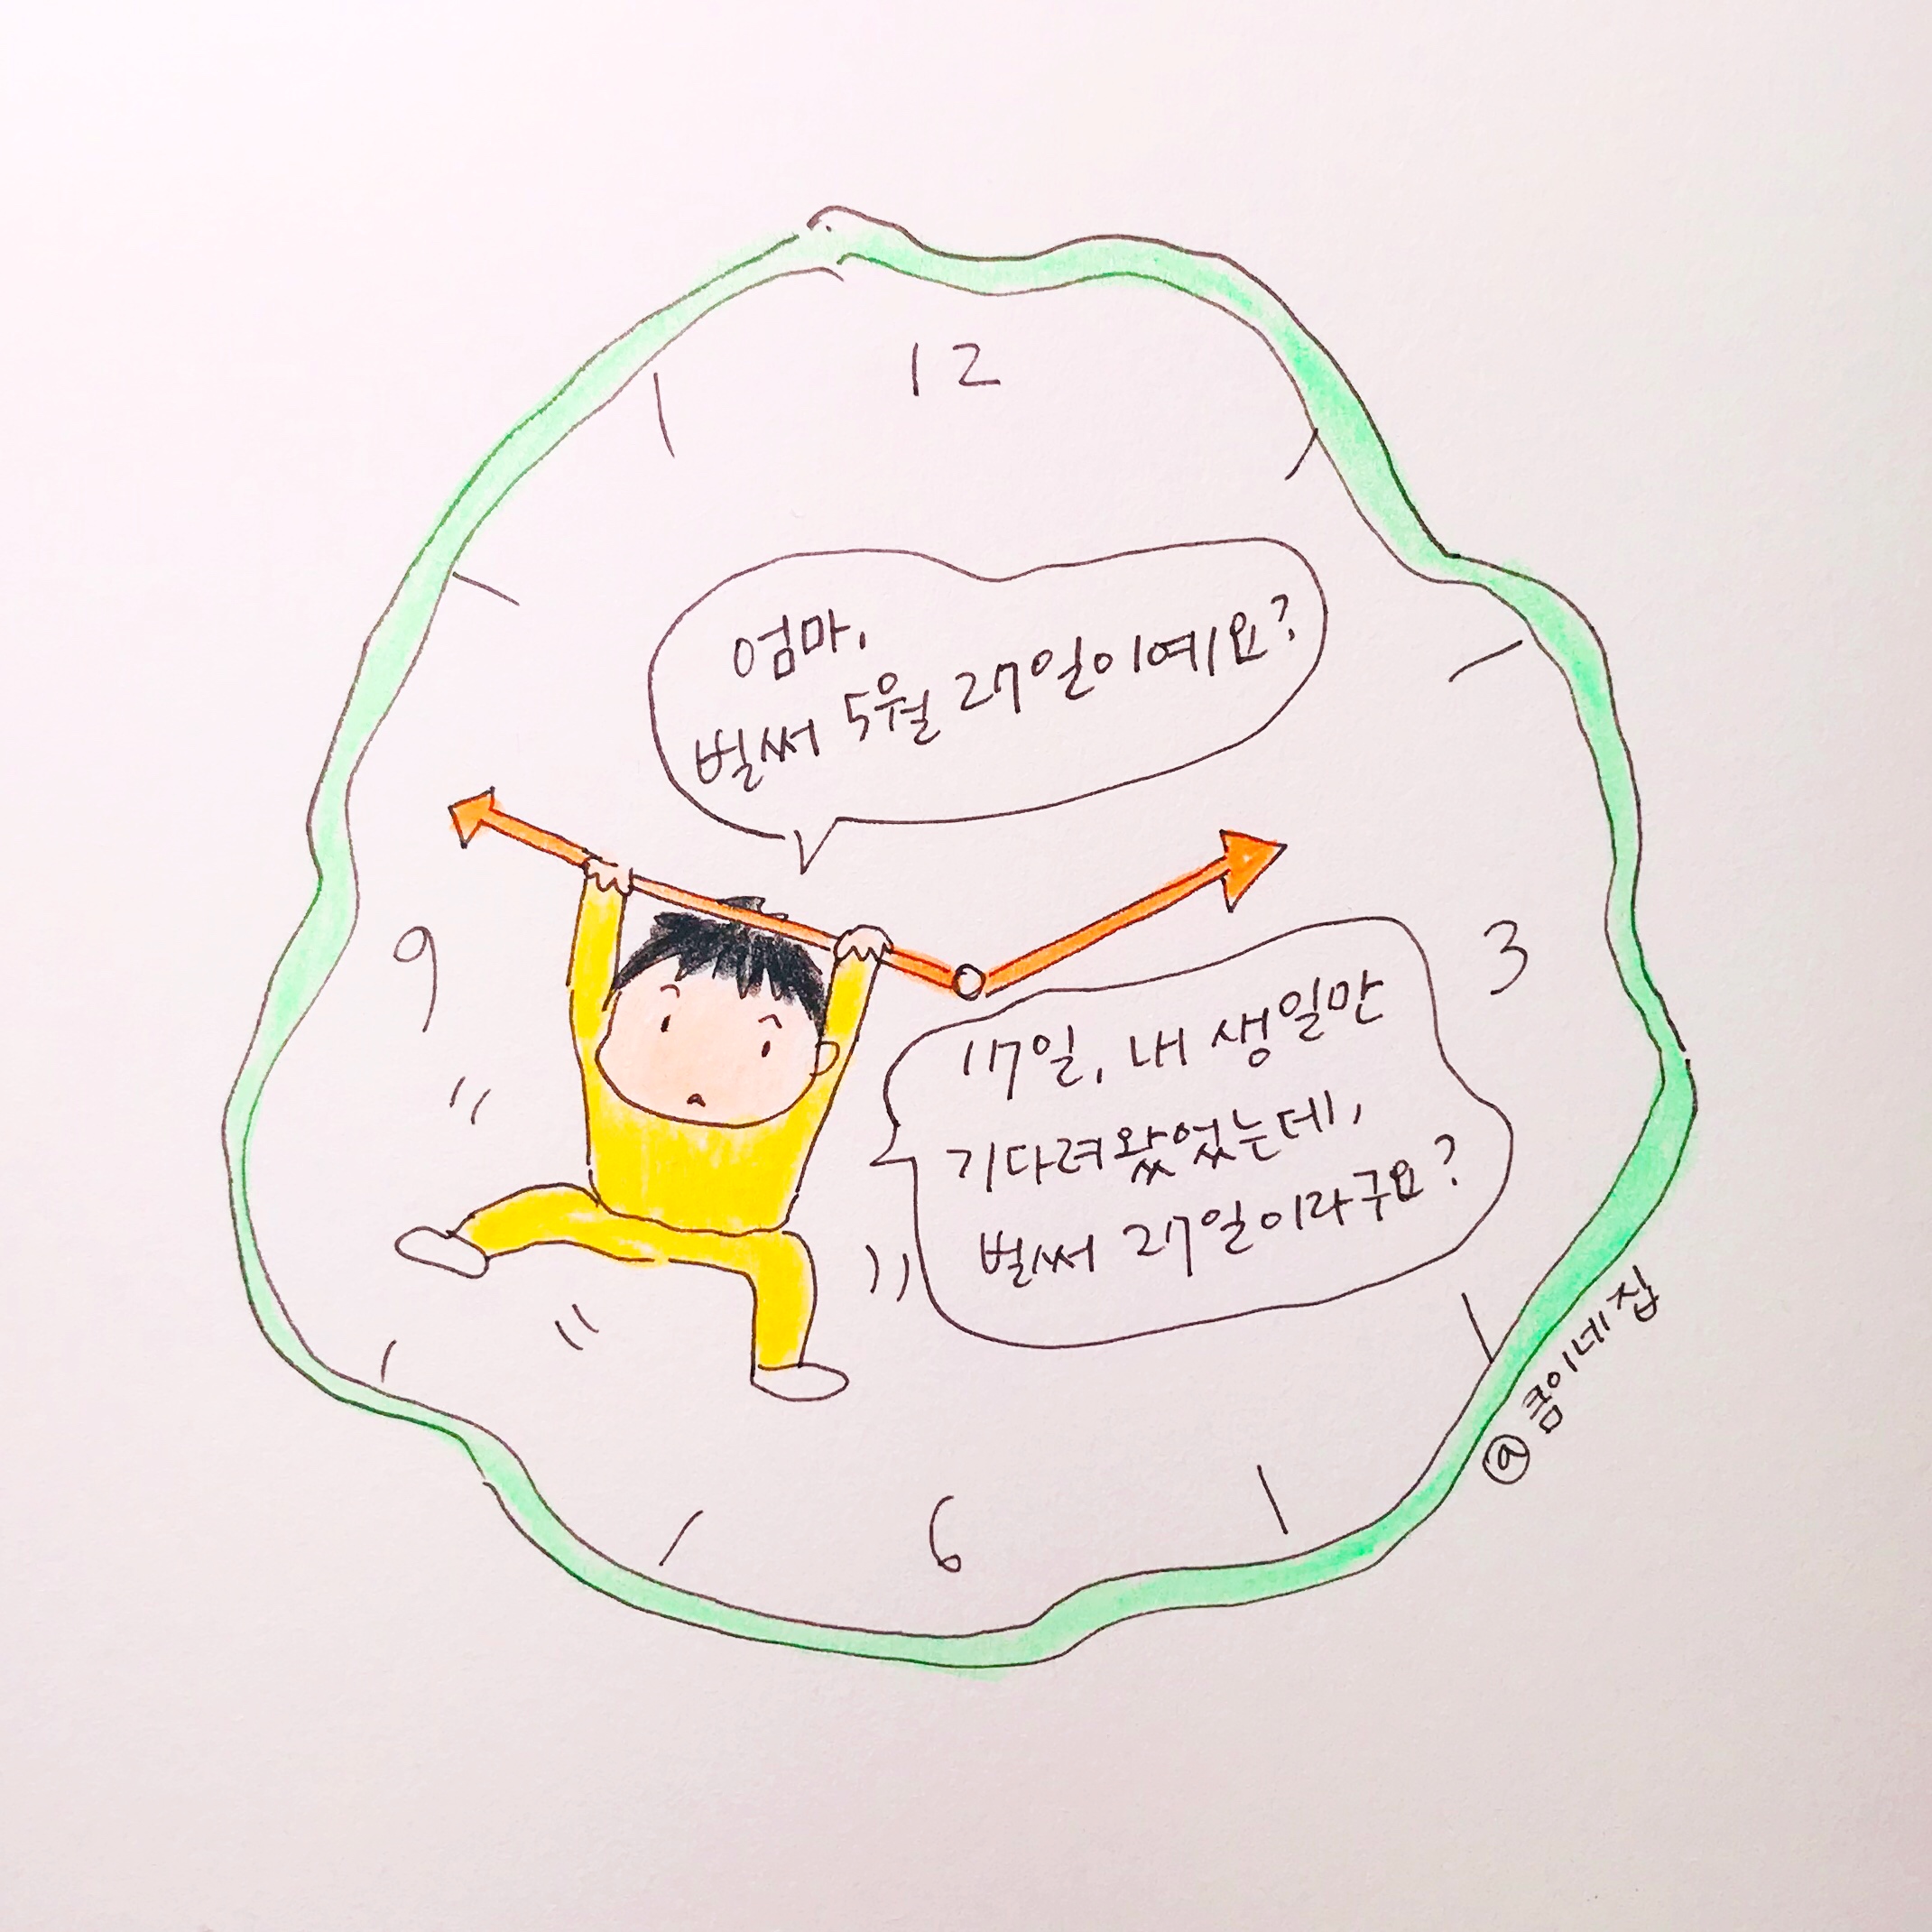 12
엄마,
벌써 5월 27일이예요?
9
3
17일, 내 생일만
기다려왔었는데,
벌써 27일이라구요?
6
@ 콤이네집